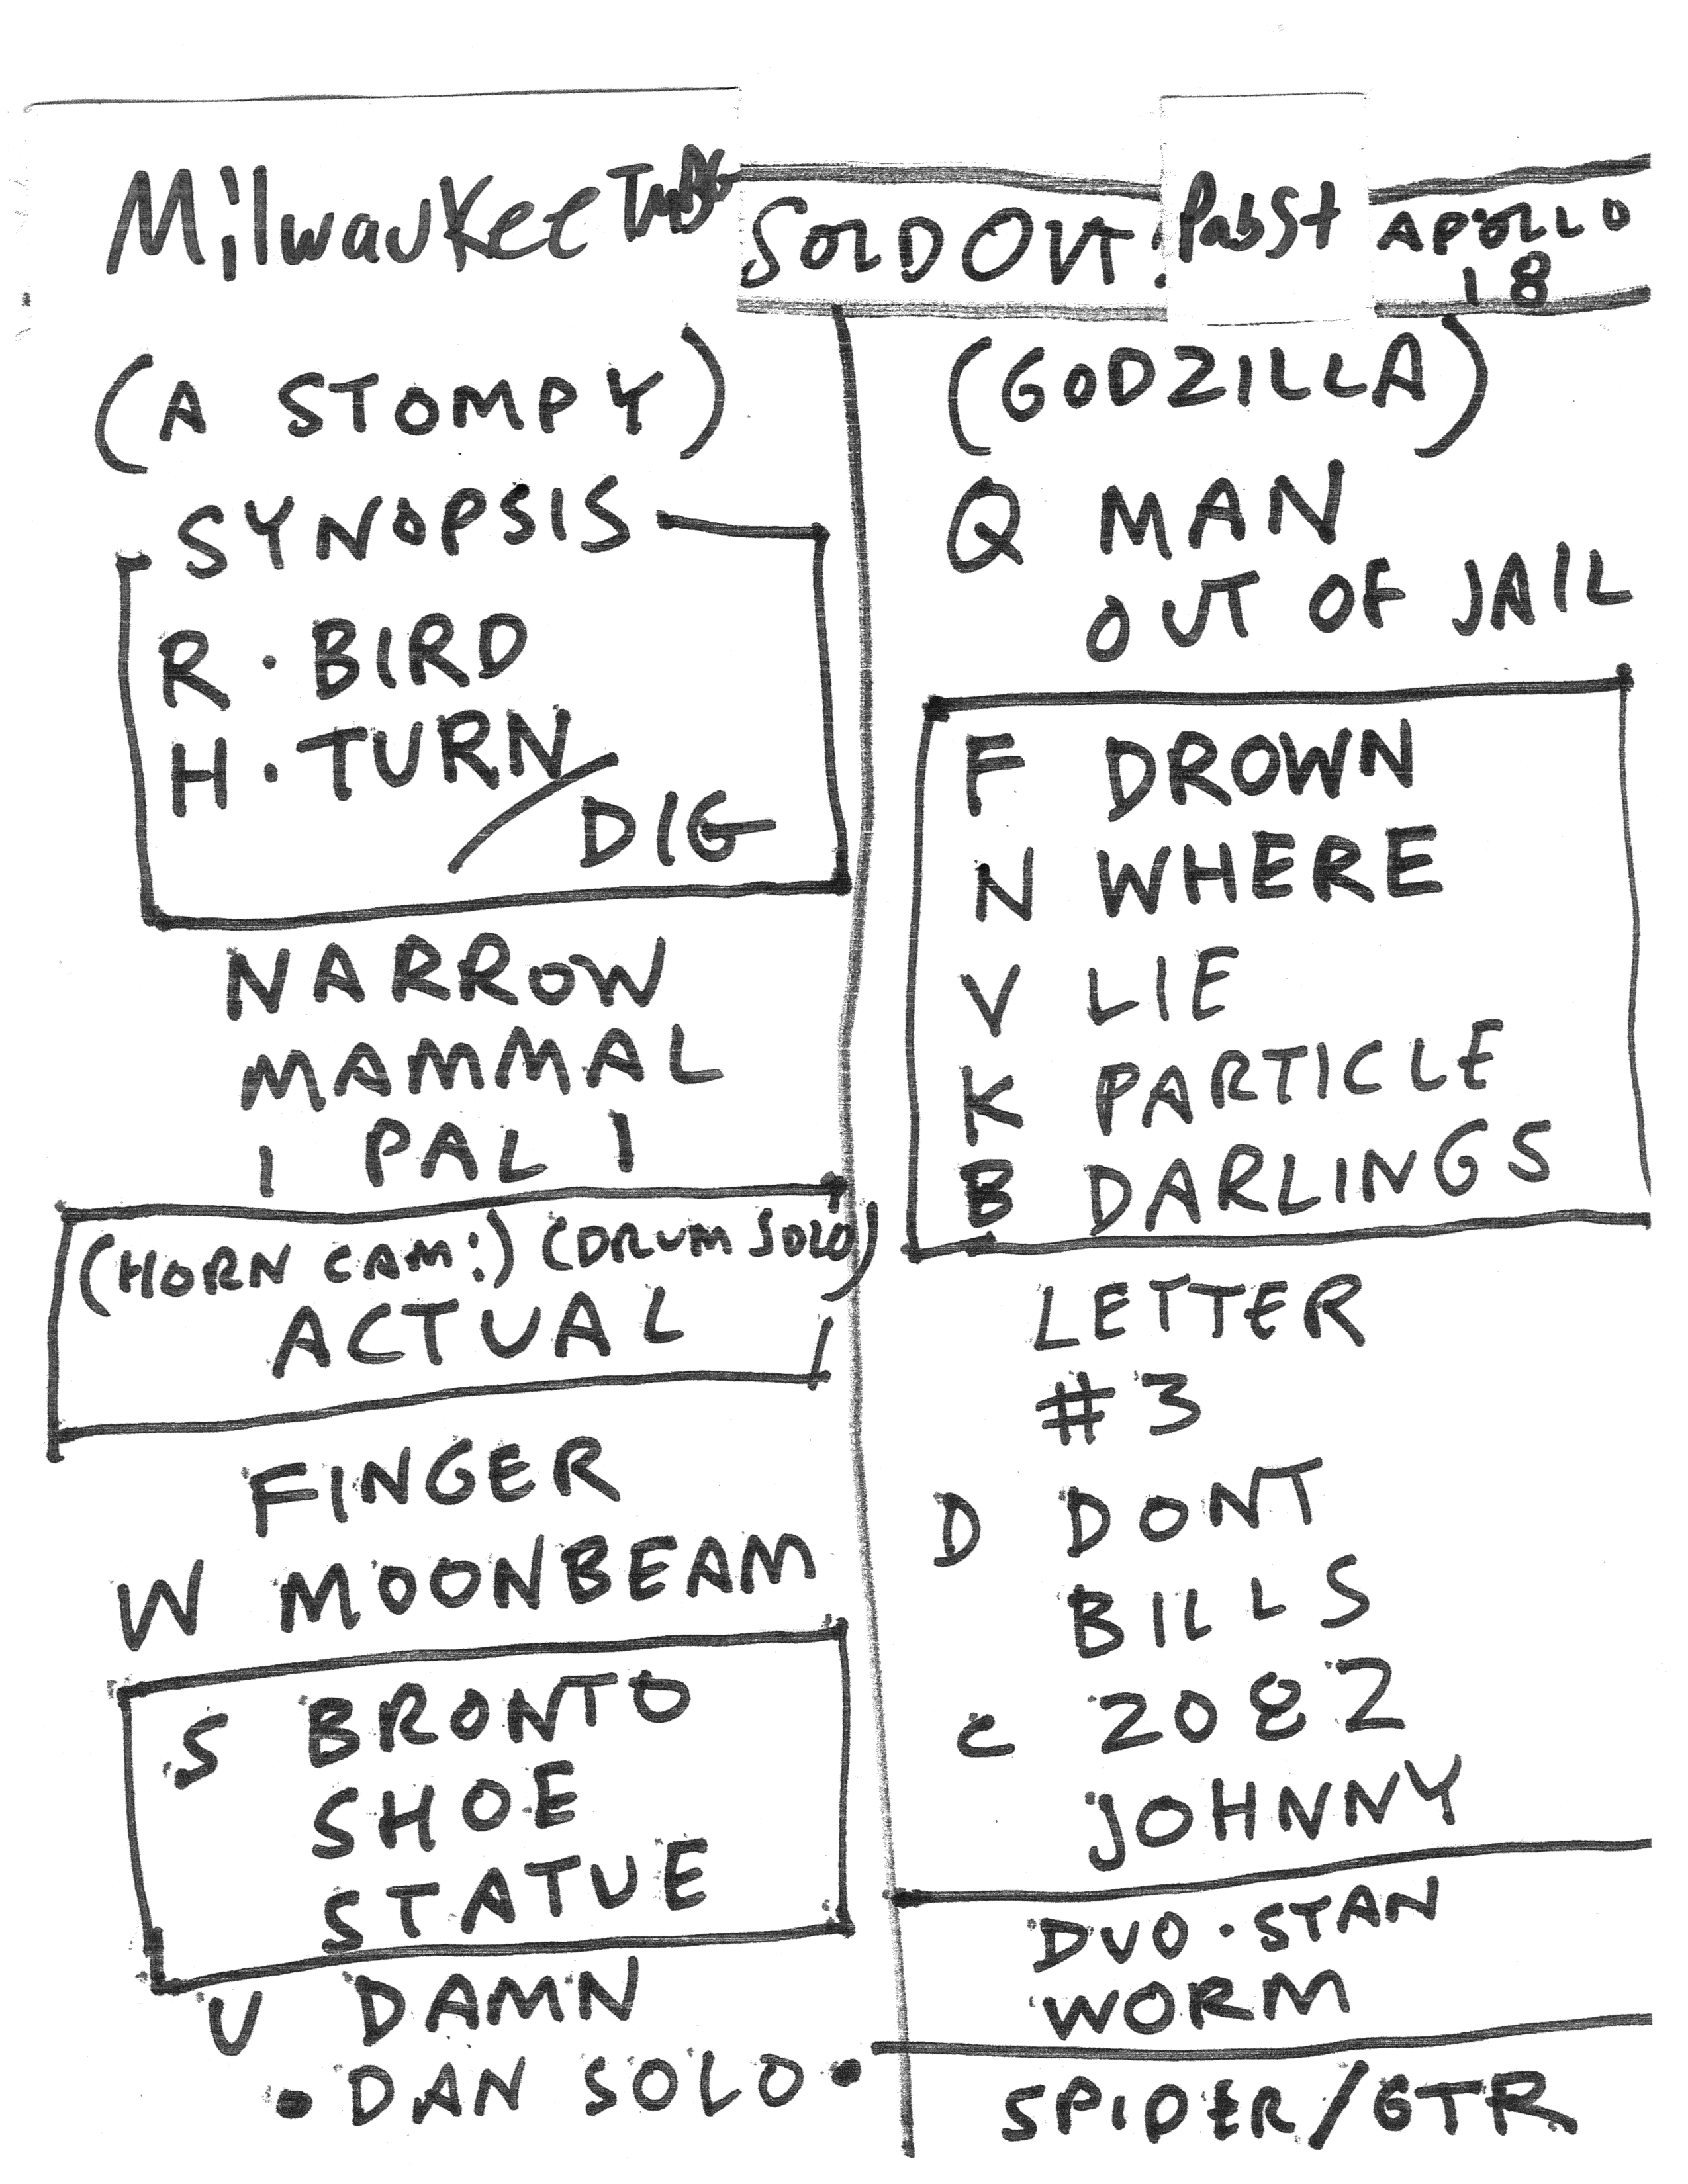 Milwaukee Tues SOLD OUT! Pabst APOLLO 18
(A STOMPY)
SYNOPSIS
R · BIRD
H · TURN/
DIG
NARROW
MAMMAL
1 PAL 1
(HORN CAM:) (DRUM SOLO)
ACTUAL
FINGER
W MOONBEAM
S BRONTO
SHOE
STATUE
U DAMN
• DAN SOLO •
(GODZILLA)
Q MAN
OUT OF JAIL
F DROWN
N WHERE
V LIE
K PARTICLE
B DARLINGS
LETTER
#3
D DONT
BILLS
C 2082
JOHNNY
DUO · STAN
WORM
SPIDER/GTR